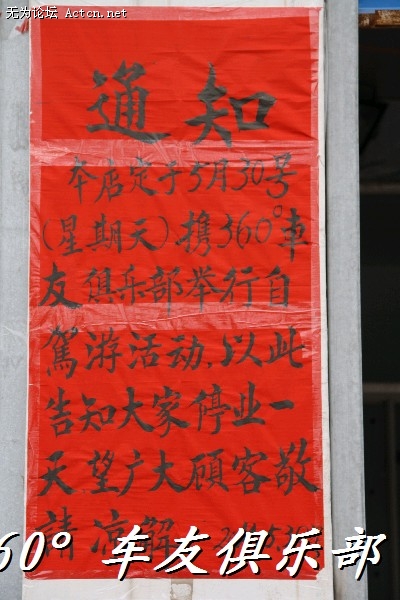 无为论坛 Actcn.net
通知
本店定于5月30号
(星期天)携360°车
友俱乐部举行自
驾游活动,以此
告知大家停业一
天望广大顾客敬
請凉解
60° 车友俱乐部